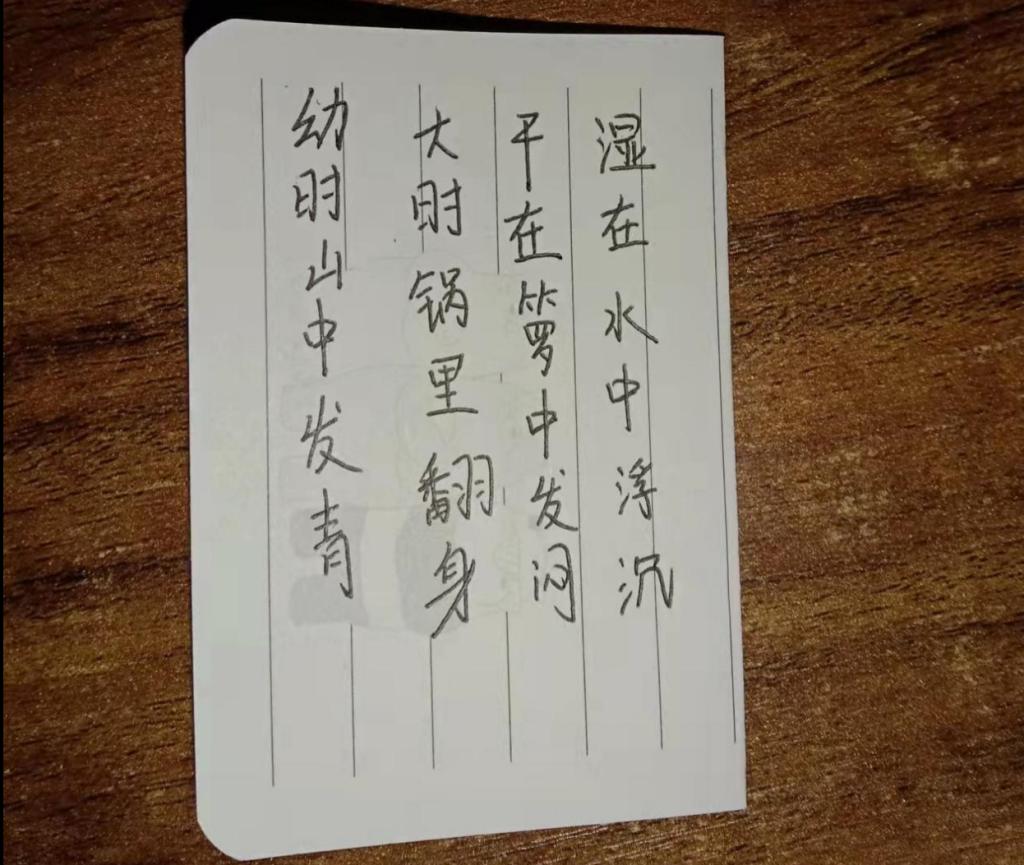 幼时山中发青
大时锅里翻身
干在箩中发问
湿在水中浮沉